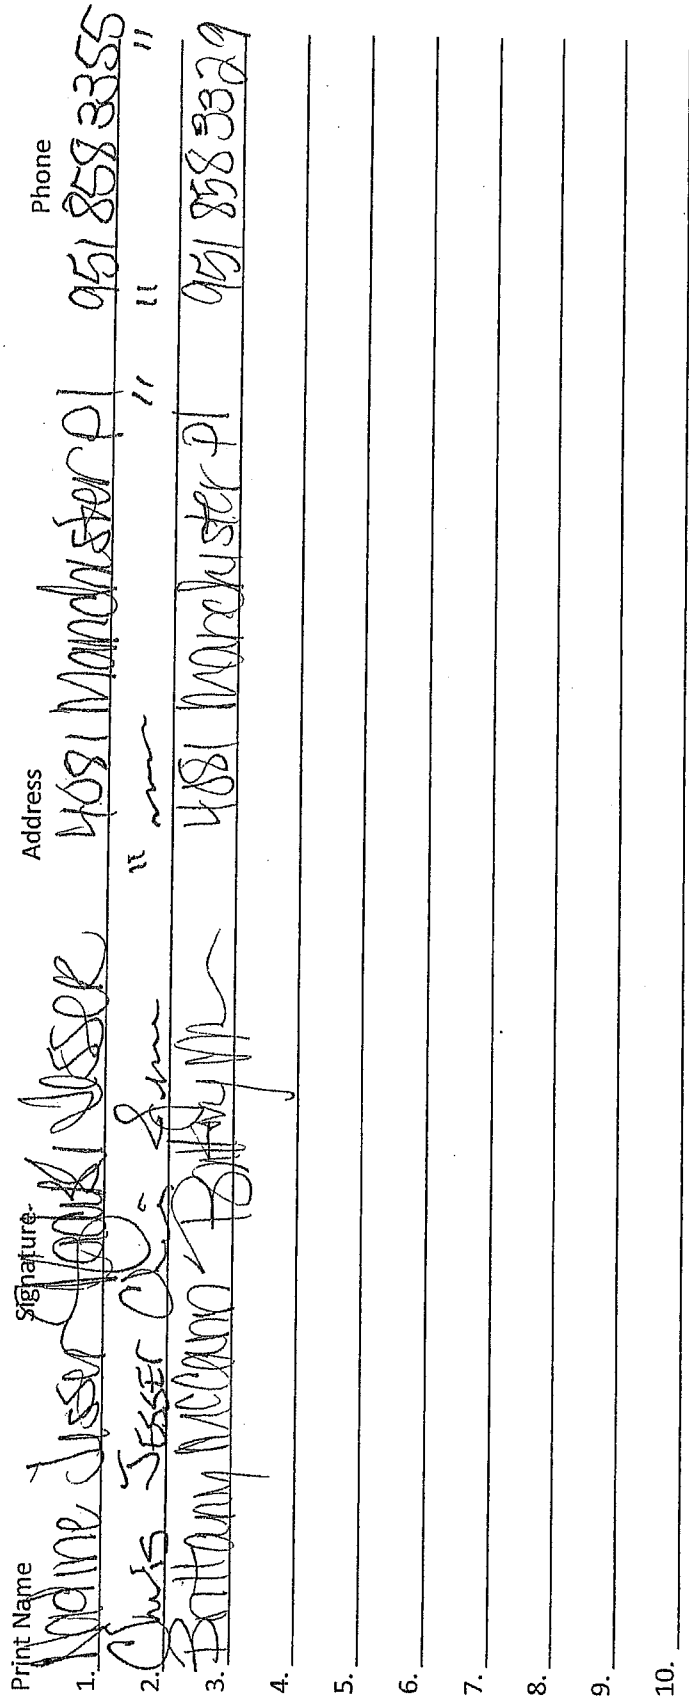 Print Name Signature Address Phone
1. Nadine Jesser 4681 Manchister Pl 951 858 3355
2. Chris Jesser " " " "
3. Brittany McCann 4681 Manchuster Pl 951 858 3329
4.
5.
6.
7.
8.
9.
10.